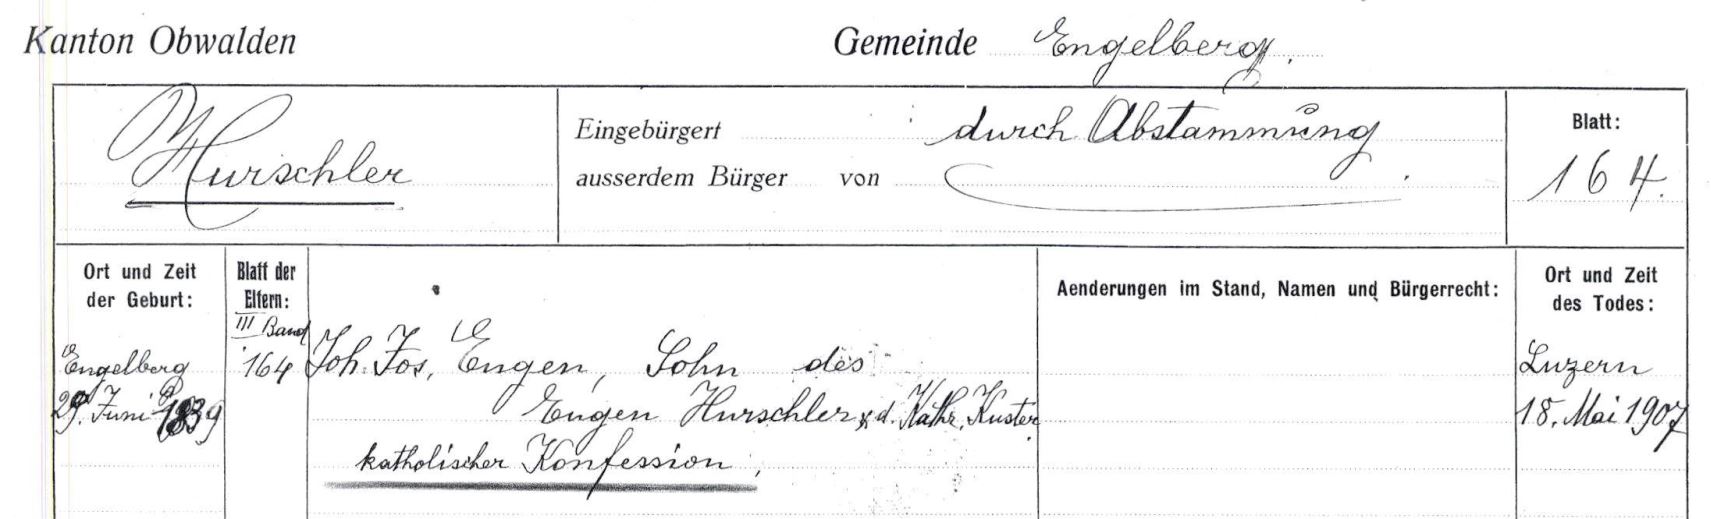 Kanton Obwalden Gemeinde Engelberg.
Hurschler
Eingebürgert durch Abstammung
ausserdem Bürger von
Blatt:
164.
Ort und Zeit der Geburt:
Blatt der Eltern:
Aenderungen im Stand, Namen und Bürgerrecht:
Ort und Zeit des Todes:
III Band
Engelberg 164 Joh. Jos. Eugen, Sohn des Luzern
29. Juni 1839 Eugen Hurschler & d. Kathr. Kuster 18. Mai 1907
katholischer Konfession,